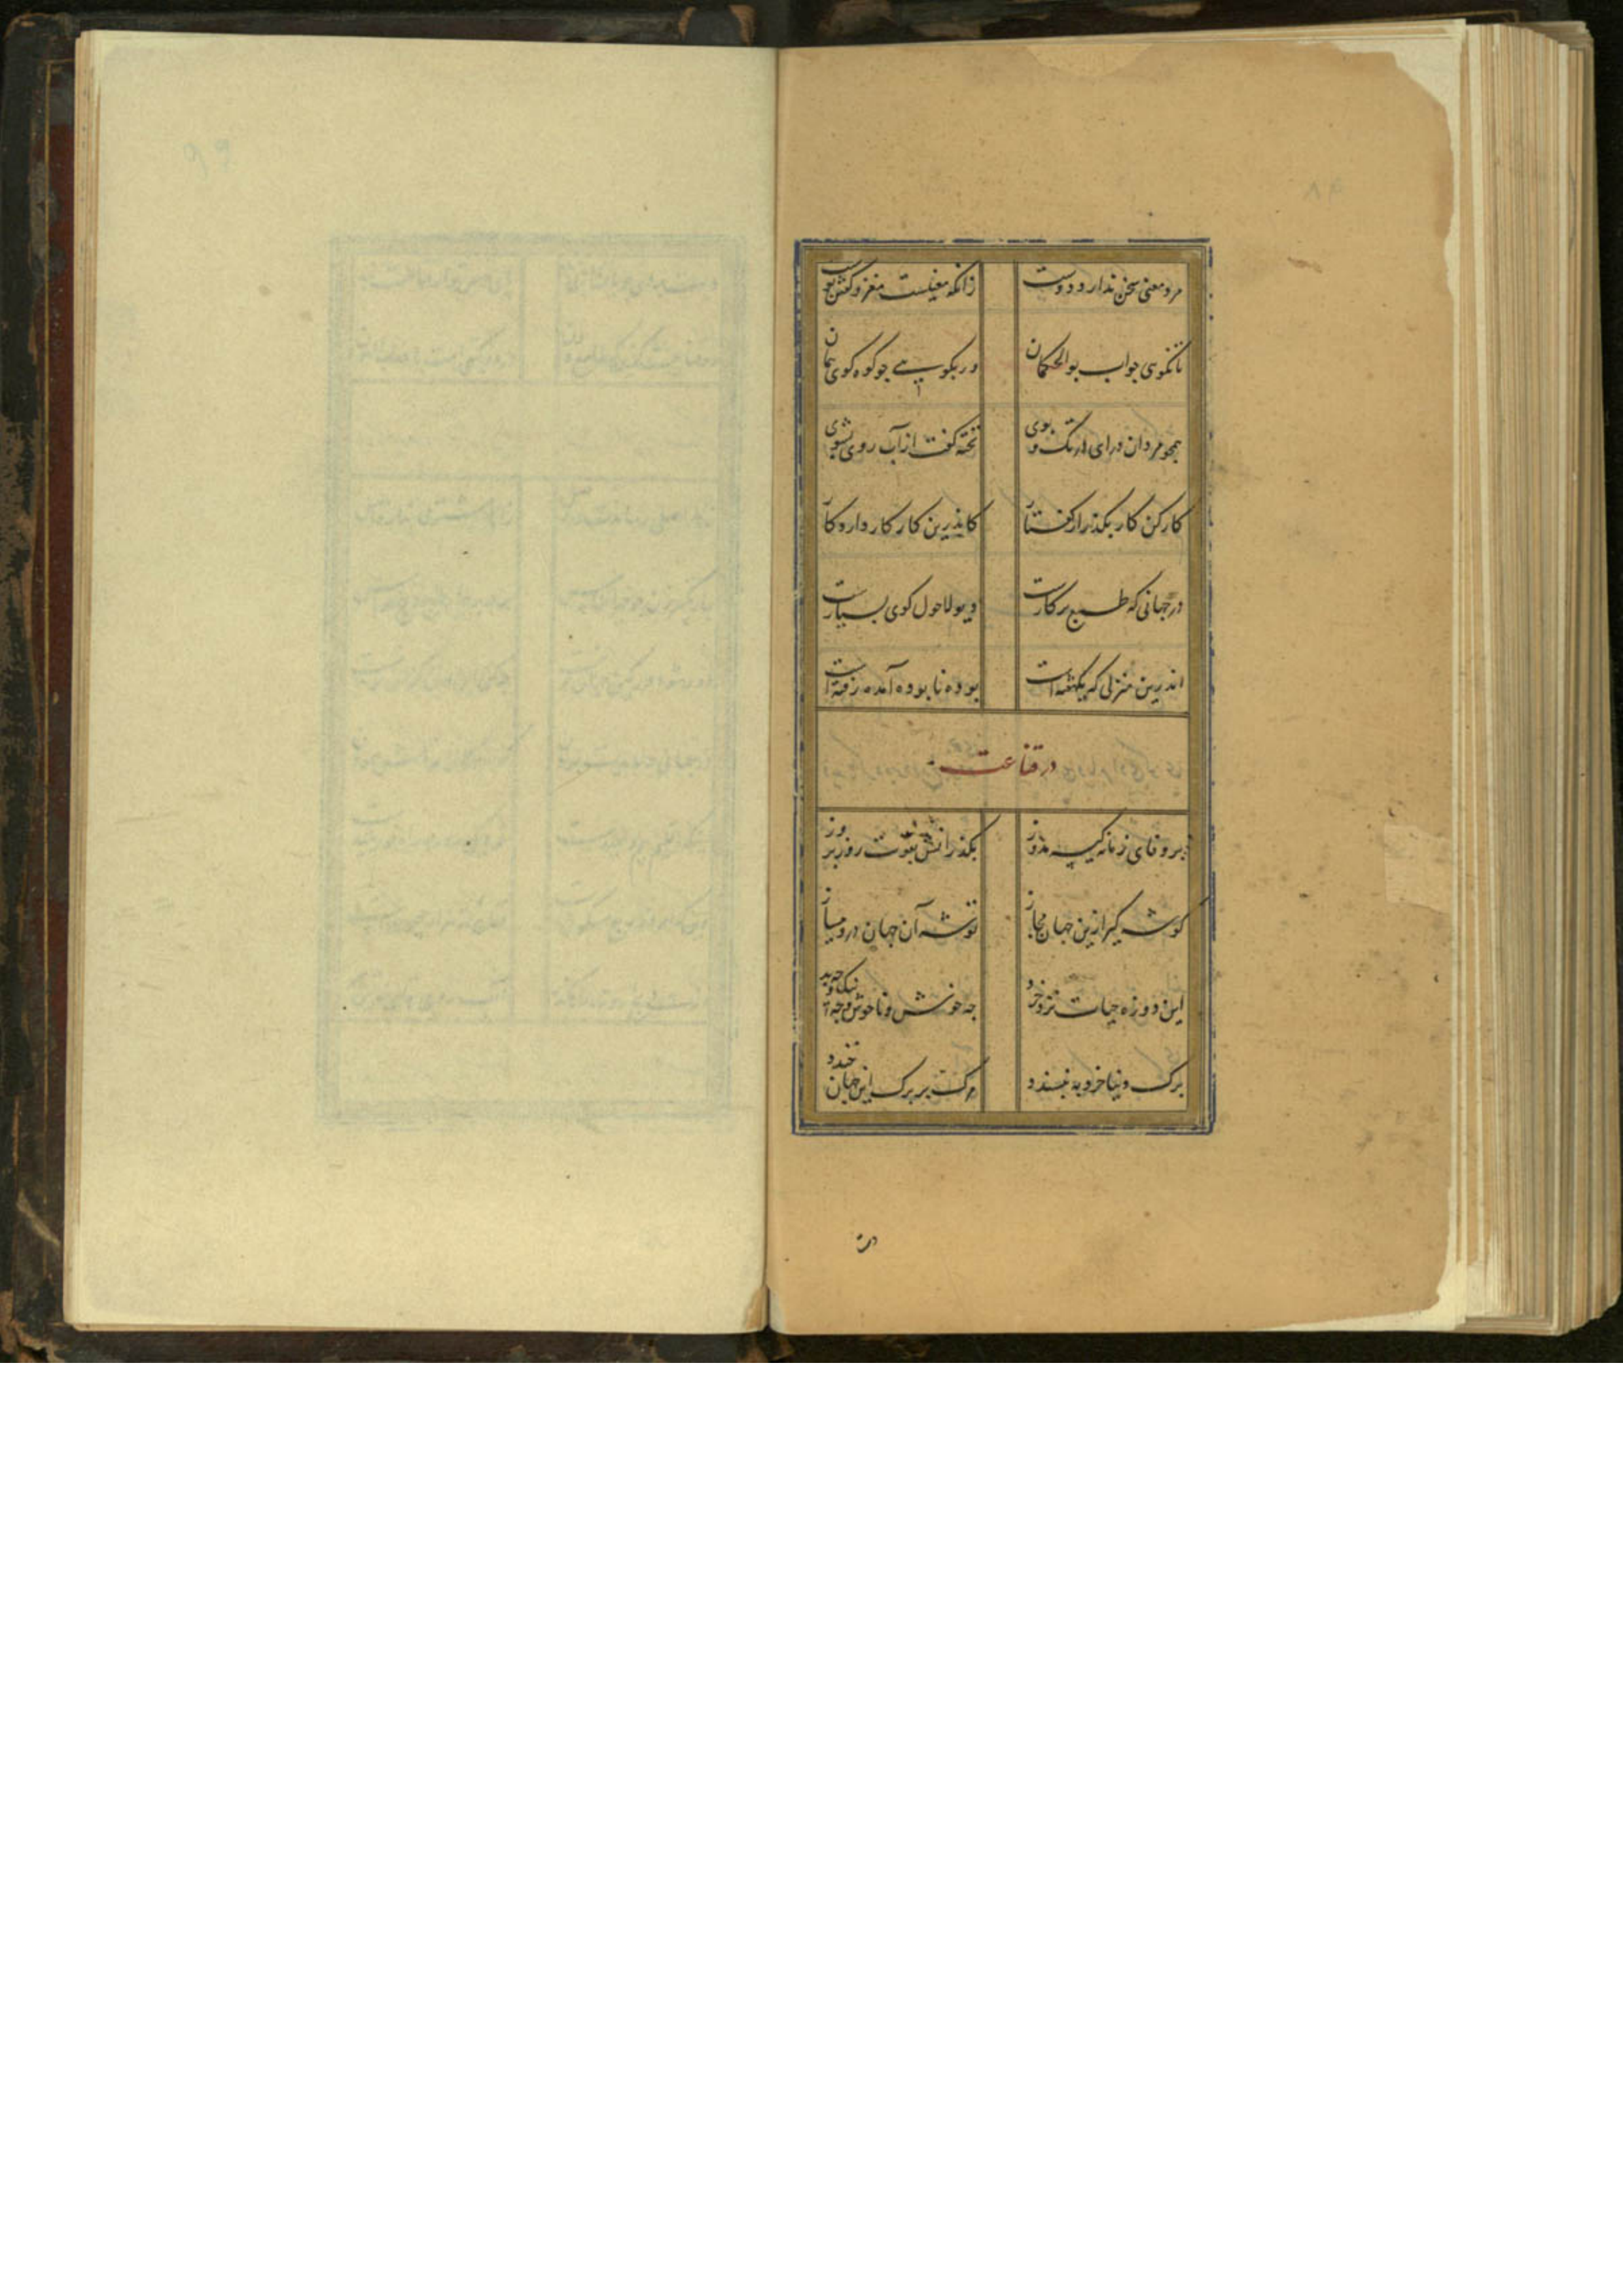 مرد معنی سخن ندارد دوست زانکه معنیست مغز و گفتن پوست
تا نگوی جواب بوالحکمان ور بگویی چو کوه کوی همان
همچو مردان درای در تک و پوی تخته گفت از آب روی بشوی
کار کن کار بگذر از گفتار کاندرین کار کار دارد کار
در جهانی که طبع بر کارست دیو لاحول کوی بسیارست
اندرین منزلی که یکهفته است بوده نابوده آمده رفته است
در قناعت
بر وفای زمانه کیسه مدوز بگذرانش بقوت روز بروز
گوشه گیر ازین جهان مجاز توشه آن جهان درو میساز
این دو روزه حیات نزد خرد چه خوش و ناخوش و چه نیک و چه بد
برگ دنیا خرد به نپسندد مرگ بر برگ این جهان خندد